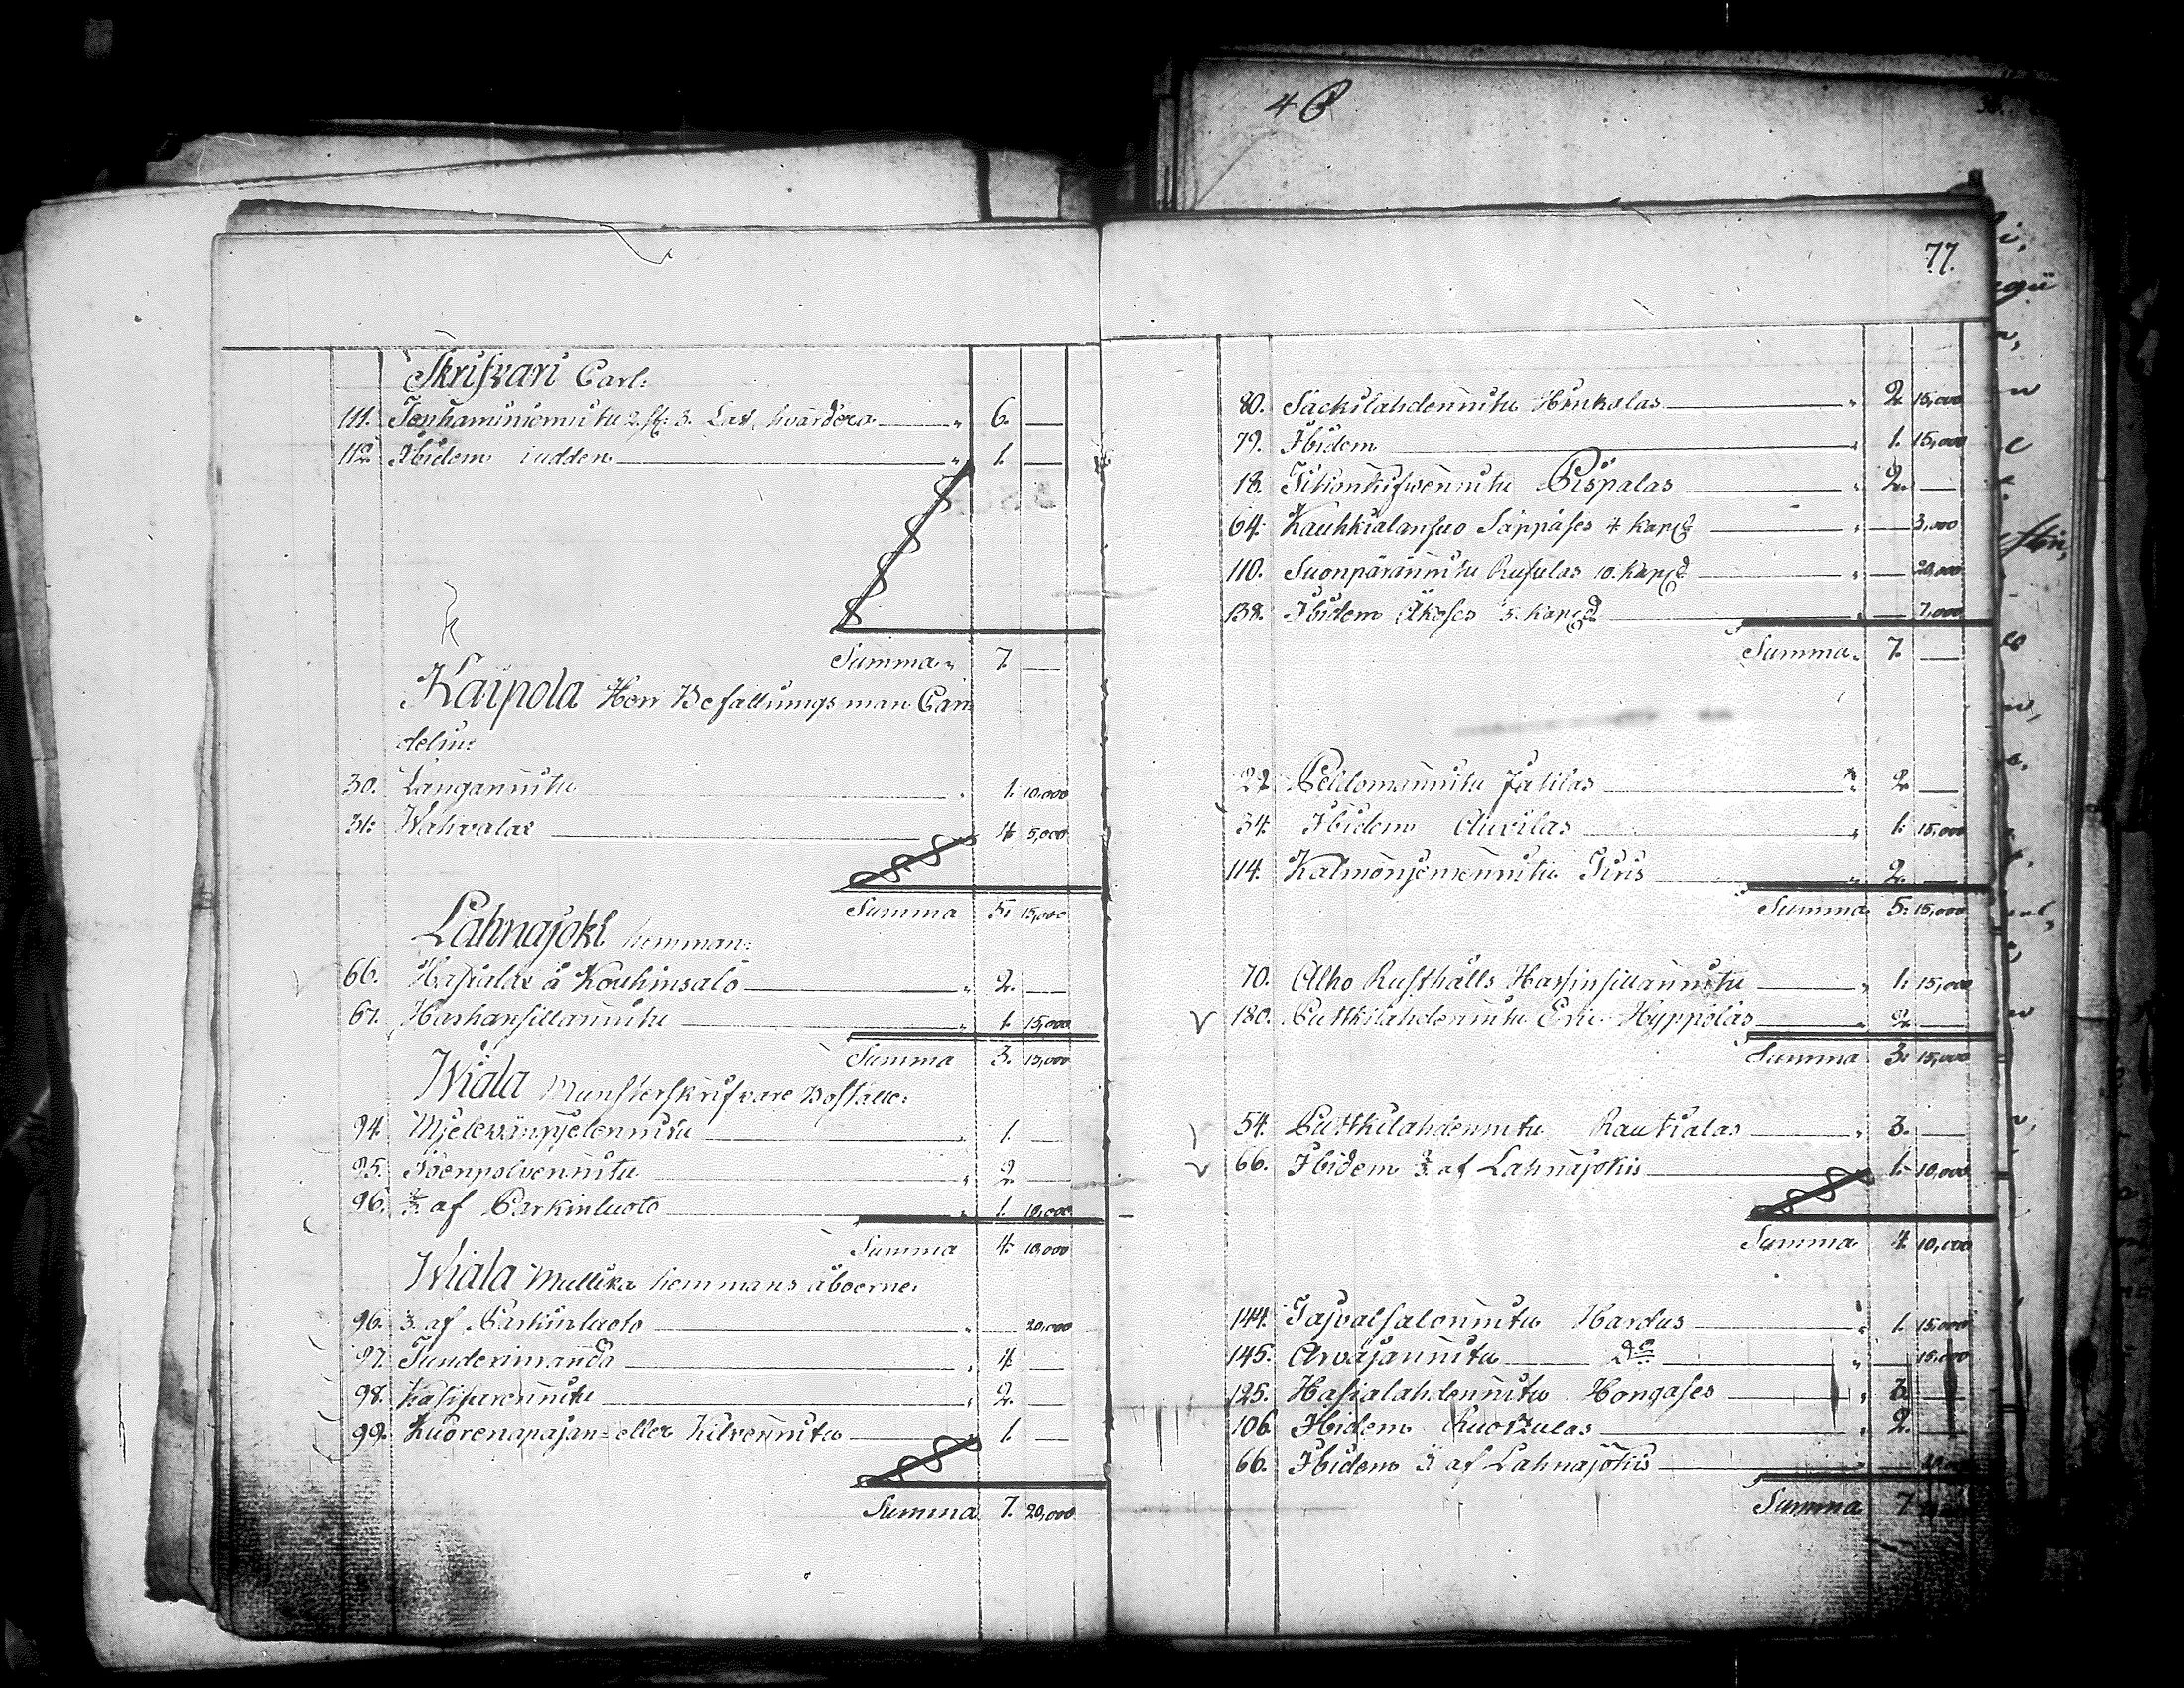 4
77.
Skrifvari Carl:
111. Tenhaminiemnitu 2. st: 3. Lass hvardera " 6. —
112. Ibidem i udden " 1. —
Summa " 7. —
Kaipola Herr Befallningsman Can
delin:
30. Langannitu " 1. 10,000
31. Wahvalax 4. 5,000
Summa 5. 15,000
Lahnajoki hemman:
66. Hasialax å Kouhinsalo " 2. —
67. Harhansillannitu " 1. 15,000
Summa 3. 15,000
Wiala Munsterskrifvare Boställe:
94. Mjelevänpjelennitu " 1. —
95. Joenpolvennitu " 2. —
96. af Parkinluoto " 1. 10,000
Summa 4. 10,000
Wiala Mullika hemmans åboerne:
96. af Parkinluoto " 20,000
97. Tunderinranda " 4 —
98. Kasisuvennitu " 2. —
99. Kuorenapajan= eller Kilvennitu 1. —
Summa 7. 20,000
80. Säckilahdennitu Hinkolas " 2. 15,000
79. Ibidem 1. 15,000
18. Pispalas " 2. —
64. Kauhkialansuo Säppäses 4 kap " — 3,000
110. Suonpärännitu Rusulas 10. kap " — 20,000
138. Ibidem Äkeses 5. kap " — 7,000
Summa " 7. —
22. Peldomannitu Jätilas " 2. —
34. Ibidem Auvilas " 1. 15,000
114. Kalmonjemennitu Iiris " 2. —
Summa 5. 15,000
70. Alho Rusthålls Harsinsillannitu " 1. 15,000
180. Puttkilahdennitu Eric Hyppöläs 2 —
Summa 3. 15,000
54. Puttkilahdennitu Rautialas " 3. —
66. Ibidem af Lahnajokis 1. 10,000
Summa 4. 10,000
144. Tajvalsalonnitu Hardus " 1. 15,000
145. Arvajannitu Do " — 15,000
125. Hasialahdennitu Hongases " 3. —
106. Ibidem " 2. —
66. Ibidem af Lahnajokis
Summa 7.